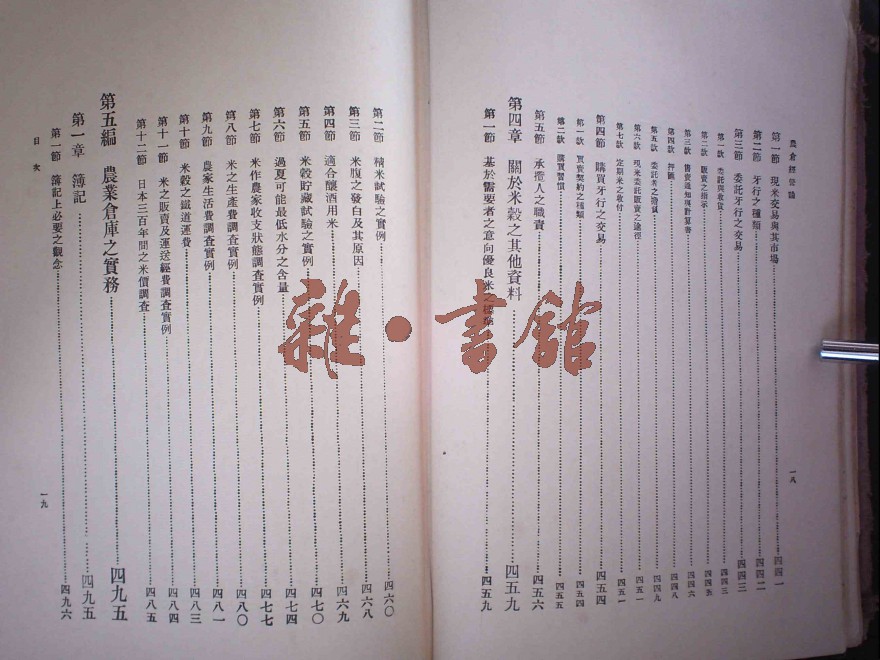 農倉經營論
一八
第一節 現米交易與其市場 四四一
第二節 牙行之種類 四四二
第三節 委託牙行之交易 四四三
第一款 委託與收貨 四四三
第二款 販賣之指示 四四五
第三款 售賣通知與計算書 四四六
第四款 押匯 四四八
第五款 委託者之擔負 四四九
第六款 現米委託販賣之途徑 四五一
第七款 定期米之收付 四五一
第四節 購買牙行之交易 四五四
第一款 買賣契約之種類 四五四
第二款 購買習慣 四五五
第五節 承攬人之職責 四五六
第四章 關於米穀之其他資料 四五九
第一節 基於需要者之意向優良米之 四五九
第二節 精米試驗之實例 四六〇
第三節 米腹之發白及其原因 四六八
第四節 適合釀酒用米 四六九
第五節 米穀貯藏試驗之實例 四七〇
第六節 過夏可能最低水分之含量 四七四
第七節 米作農家收支狀態調查實例 四七七
第八節 米之生產費調查實例 四八〇
第九節 農家生活費調查實例 四八一
第十節 米穀之鐵道運費 四八三
第十一節 米之販賣及運送經費調查實例 四八四
第十二節 日本三百年間之米價調查 四八五
第五編 農業倉庫之實務 四九五
第一章 簿記 四九五
第一節 簿記上必要之觀念 四九六
目次
一九
雜·書館